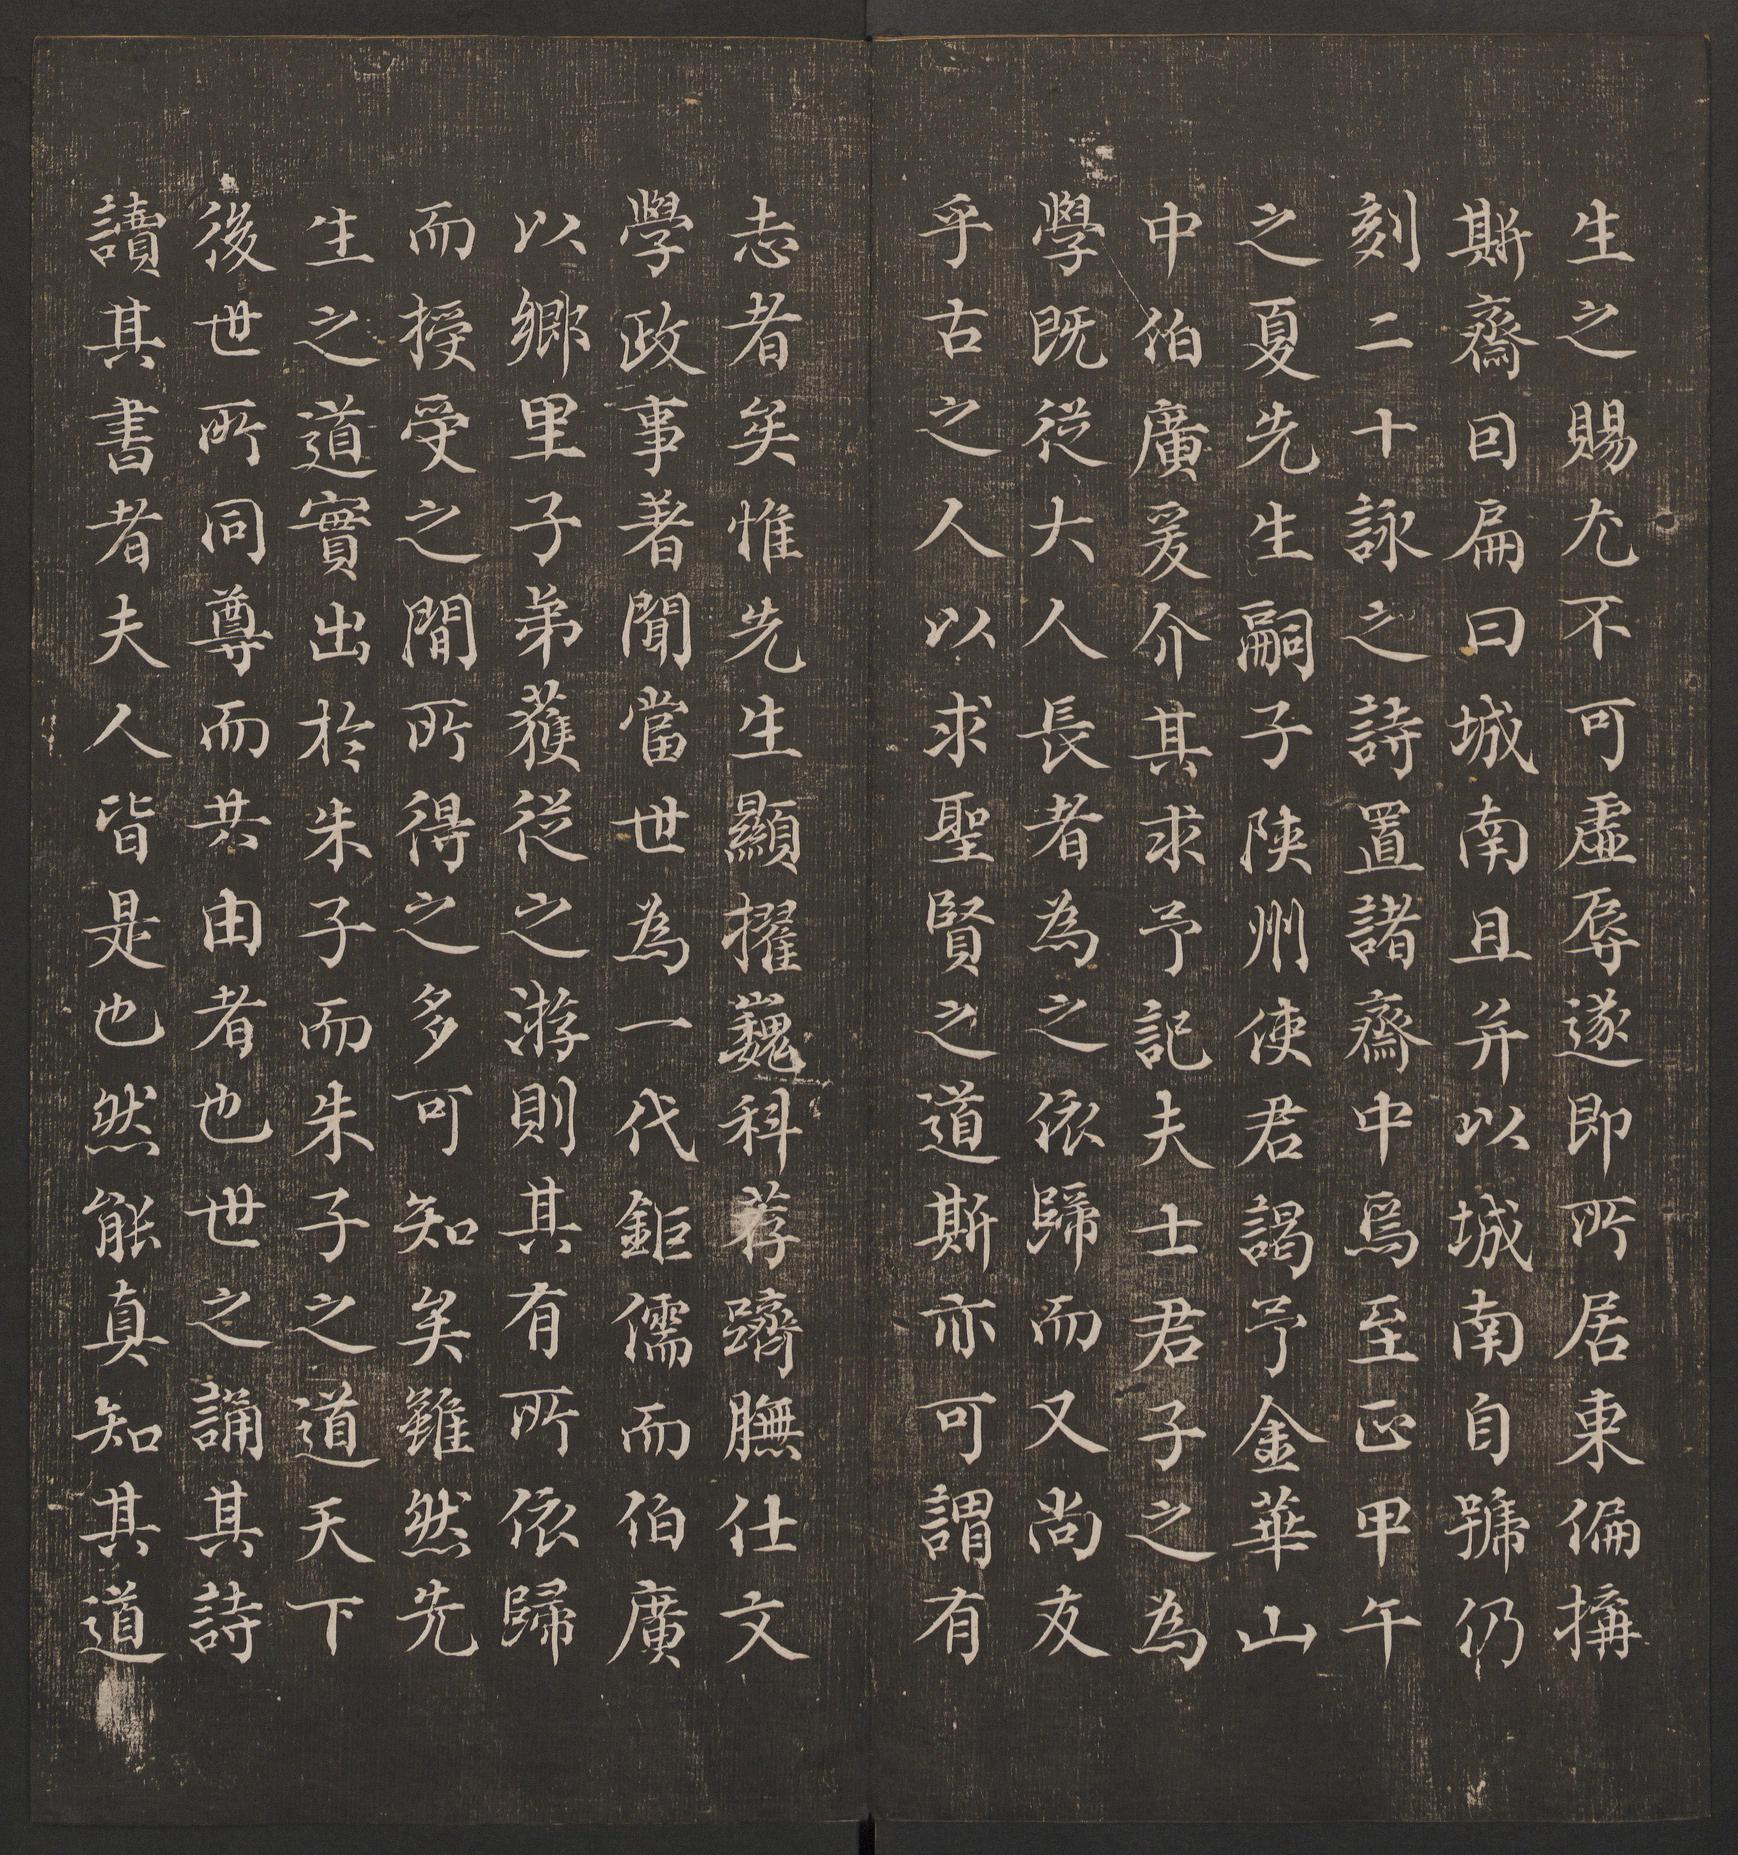 生之賜尤不可虛辱遂即所居東偏搆
斯齋因扁曰城南且并以城南自號仍
刻二十詠之詩置諸齋中焉至正甲午
之夏先生嗣子陝州使君謁予金華山
中伯廣爰介其求予記夫士君子之為
學既從大人長者為之依歸而又尚友
乎古之人以求聖賢之道斯亦可謂有
志者矣惟先生顯擢巍科荐躋膴仕文
學政事著聞當世為一代鉅儒而伯廣
以鄉里子弟獲從之游則其有所依歸
而授受之間所得之多可知矣雖然先
生之道實出於朱子而朱子之道天下
後世所同尊而共由者也世之誦其詩
讀其書者夫人皆是也然能真知其道